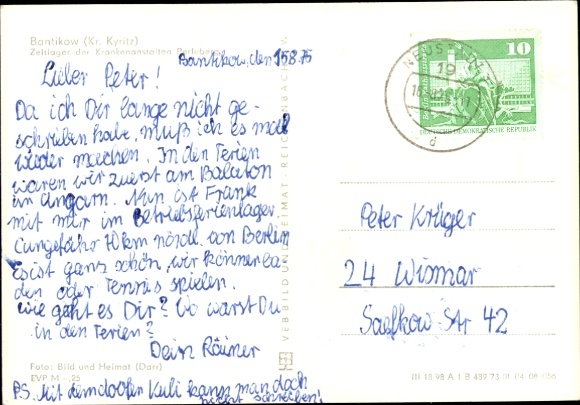 Bantikow (Kr. Kyritz)
Zeltlager der Krankenanstalten Perleberg
Bantikow, den 15.8.75
Lieber Peter!
Da ich Dir lange nicht ge-
schrieben habe, muß ich es mal
wieder machen. In den Ferien
waren wir zuerst am Balaton
in Ungarn. Nun ist Frank
mit mir im Betriebsferienlager.
(ungefähr 70km nördl. von Berlin)
Es ist ganz schön, wir können ba-
den oder Tennis spielen.
Wie geht es Dir? Wo warst Du
in den Ferien?
Dein Rainer
Foto: Bild und Heimat (Darr)
EVP M -,25
P.S. Mit dem doofen Kuli kann man doch
nicht schreiben!
VEB BILD UND HEIMAT, REICHENBACH I. V.
NEUST
19
d
10
DEUTSCHE DEMOKRATISCHE REPUBLIK
Peter Krüger
24 Wismar
Saefkow-Str 42
III 18 98 A 1 B 489 73 01 04 08 056